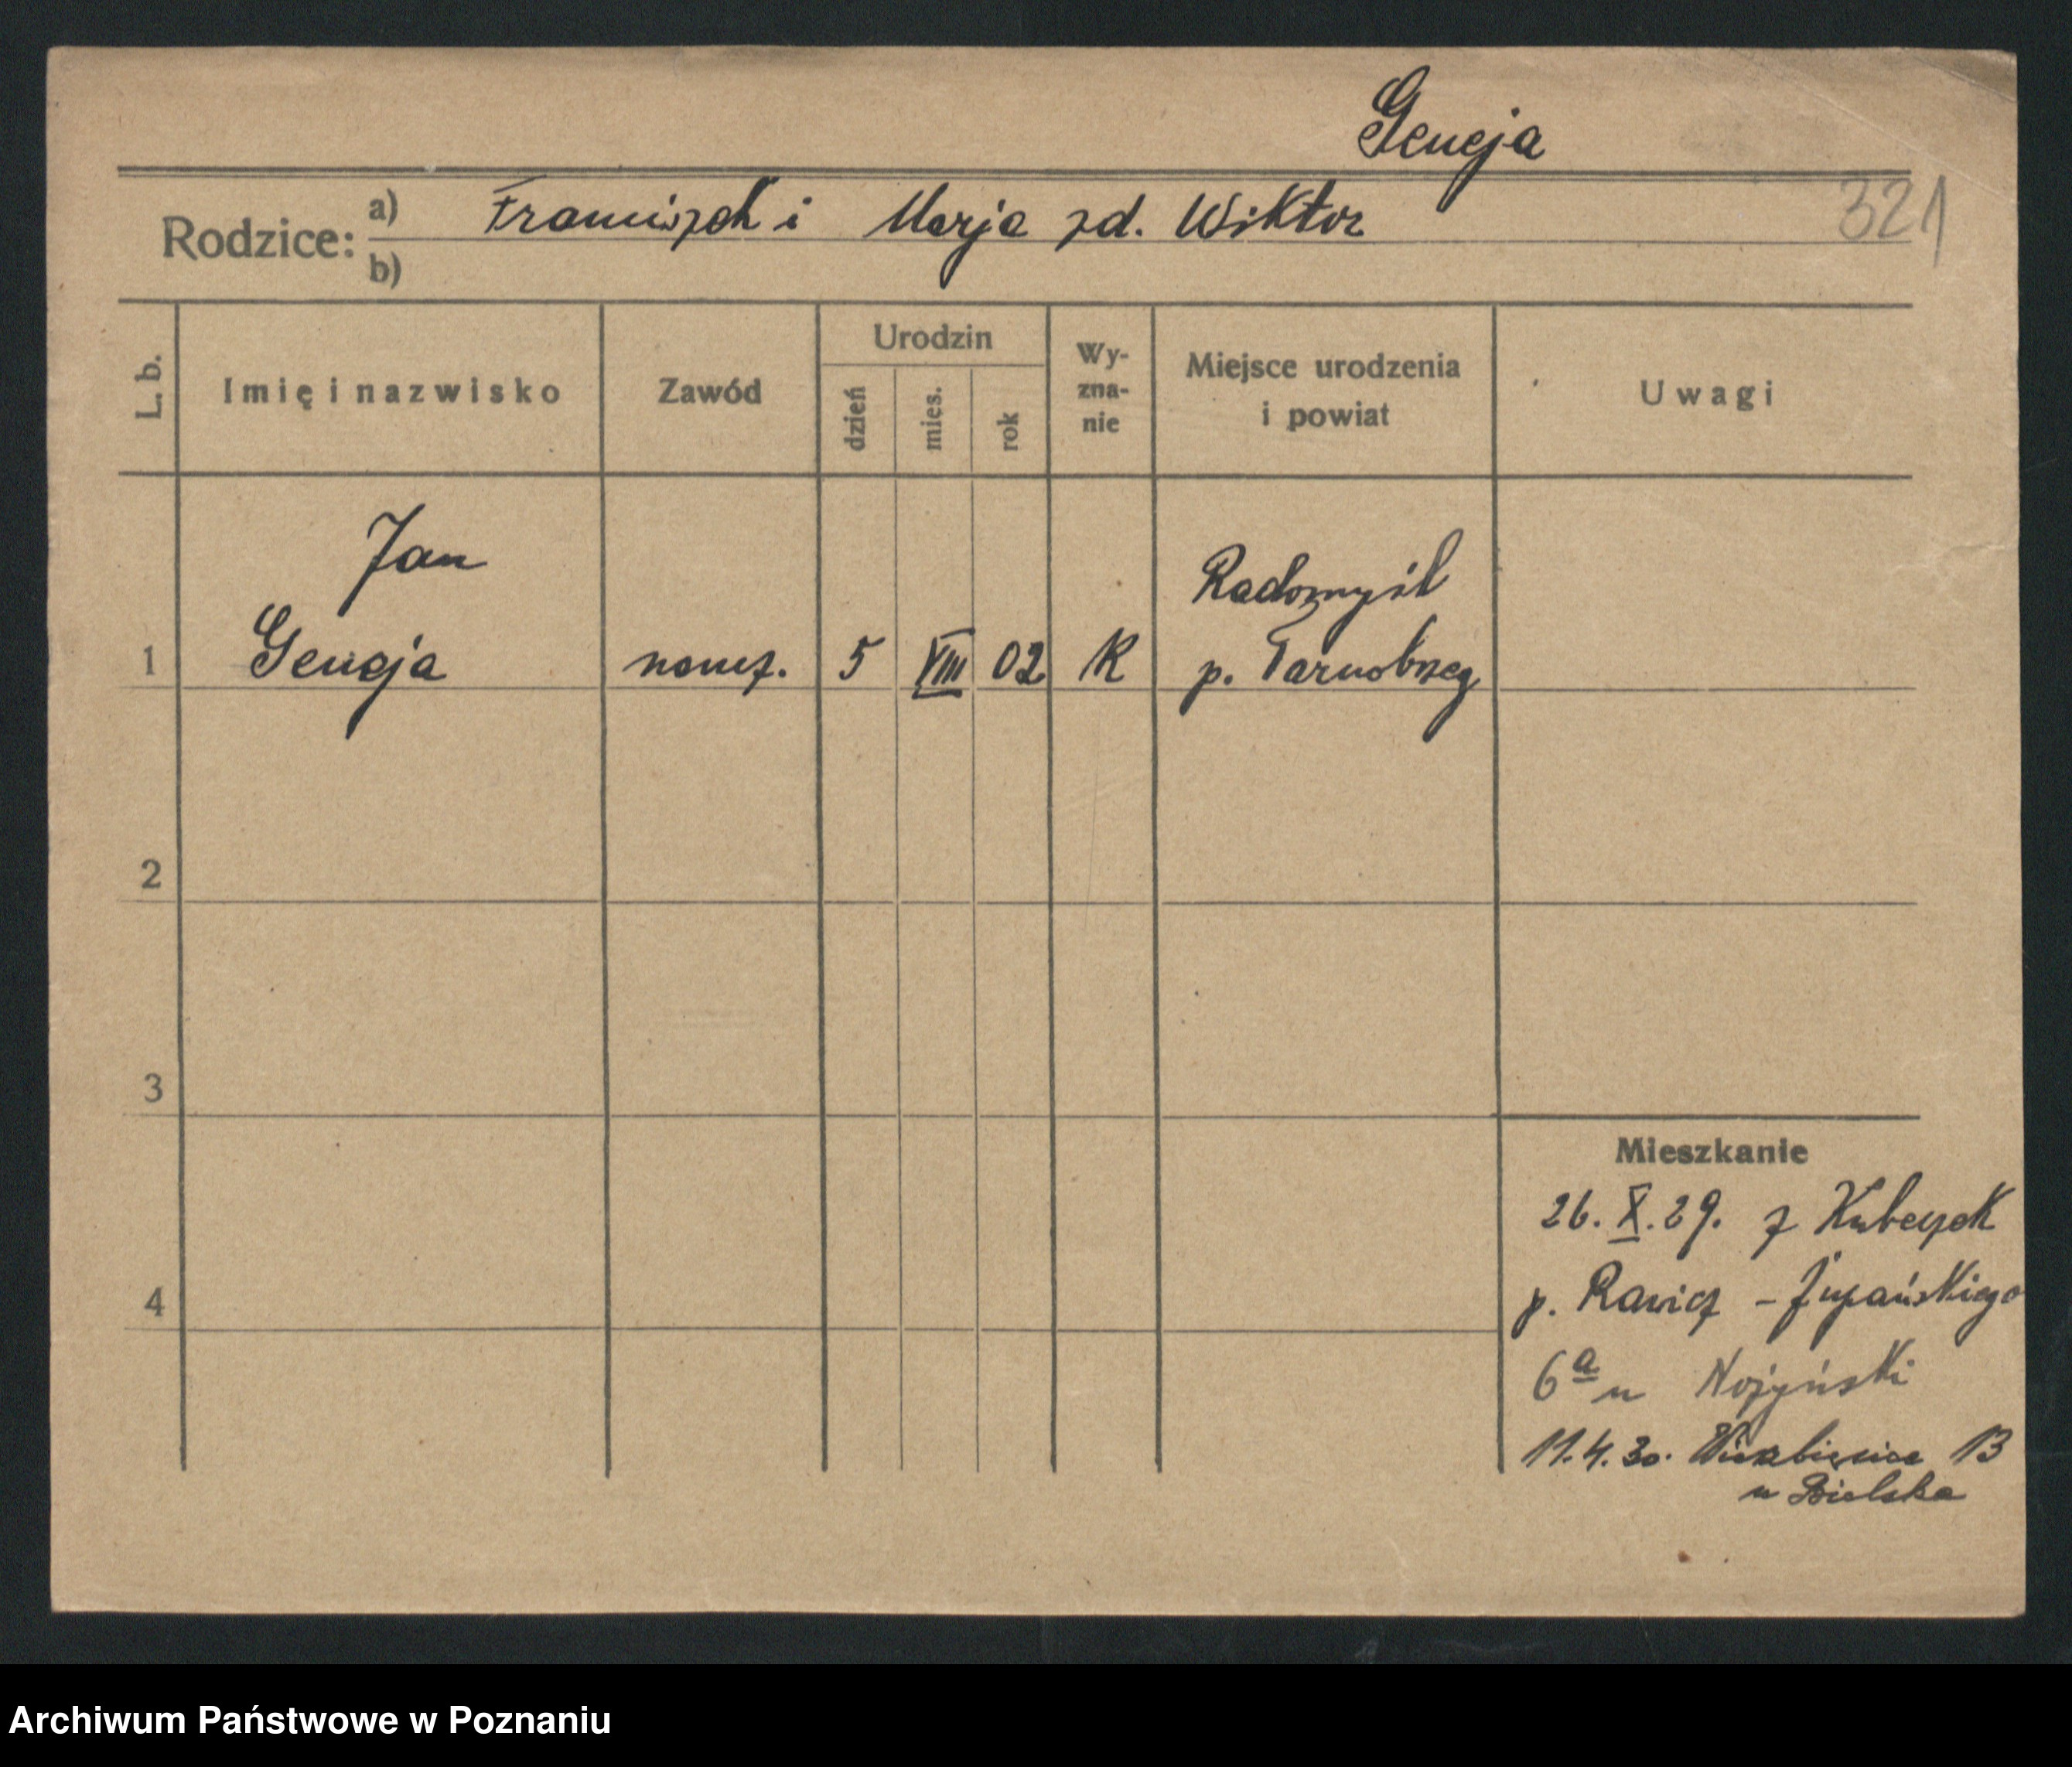 Gencja
321
Rodzice: a) Franciszek i Marja zd. Wiktor
b)
L. b. Imię i nazwisko Zawód Urodzin dzień mies. rok Wy-zna-nie Miejsce urodzenia i powiat Uwagi
Jan Radomyśl
1 Gencja naucz. 5 VIII 02 K p. Tarnobrzeg
2
3
Mieszkanie
26. X. 29. z Kubeczek
4 p. Rawicz – Żupańskiego
6a u Nożyński
11.4.30. 13
u Bielska
Archiwum Państwowe w Poznaniu